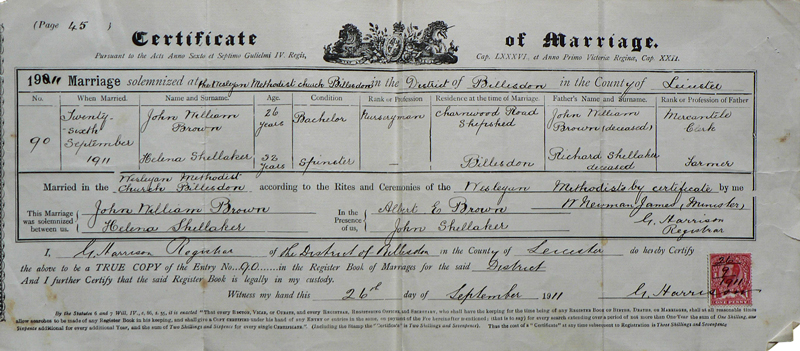 (Page 45)
Certificate of Marriage.
Pursuant to the Acts Anno Sexto et Septimo Gulielmi IV. Regis, Cap. LXXXVI. et Anno Primo Victoriæ Reginæ, Cap. XXII.
1911 Marriage solemnized at the Wesleyan Methodist church Billesdon in the District of Billesdon in the County of Leicester
No. When Married. Name and Surname. Age. Condition Rank or Profession Residence at the time of Marriage. Father's Name and Surname. Rank or Profession of Father
90 Twenty-sixth September 1911 John William Brown 26 years Bachelor Nurseryman Charnwood Road Shepshed John William Brown (deceased) Mercantile Clerk
Helena Shellaker 32 years Spinster — Billesdon Richard Shellaker deceased Farmer
Married in the Wesleyan Methodist Church Billesdon, according to the Rites and Ceremonies of the Wesleyan Methodists by certificate by me
This Marriage was solemnized between us, John William Brown Helena Shellaker In the Presence of us, Albert E Brown John Shellaker W Newman James, Minister, G. Harrison Registrar
I, G Harrison Registrar of the District of Billesdon in the County of Leicester do hereby Certify
the above to be a TRUE COPY of the Entry No. 90 in the Register Book of Marriages for the said District
And I further Certify that the said Register Book is legally in my custody.
Witness my hand this 26th day of September 1911 G. Harrison
26 9 1911
ONE PENNY
By the Statute 6 and 7 Will. IV., c. 86, s. 35, it is enacted "That every RECTOR, VICAR, or CURATE, and every REGISTRAR, REGISTERING OFFICER, and SECRETARY, who shall have the keeping for the time being of any REGISTER BOOK of BIRTHS, DEATHS, or MARRIAGES, shall at all reasonable times
allow searches to be made of any Register Book in his keeping, and shall give a COPY CERTIFIED under his hand of any ENTRY or entries in the same, on payment of the Fee hereinafter mentioned; (that is to say) for every search extending over a period of not more than One Year the sum of One Shilling, and
Sixpence additional for every additional Year, and the sum of Two Shillings and Sixpence for every single CERTIFICATE." (Including the Stamp the "Certificate" is Two Shillings and Sevenpence). Thus the cost of a "Certificate" at any time subsequent to Registration is Three Shillings and Sevenpence.